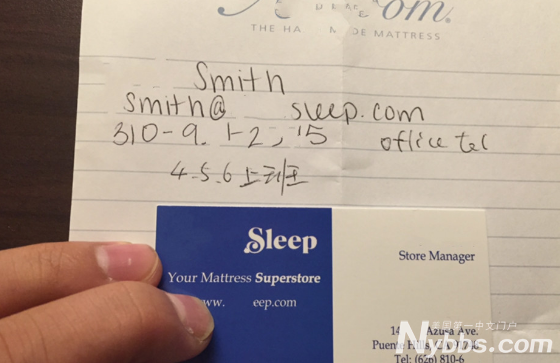 THE HA DE MATTRESS
Smith
Smith@ sleep.com
310-9. 1-2, 15 office tel
4.5.6
Sleep
Your Mattress Superstore
ww. eep.com
Store Manager
14 Azusa Ave.
Puente Hills,
Tel: (626) 810-6
美国第一中文门户
Nybbs.com